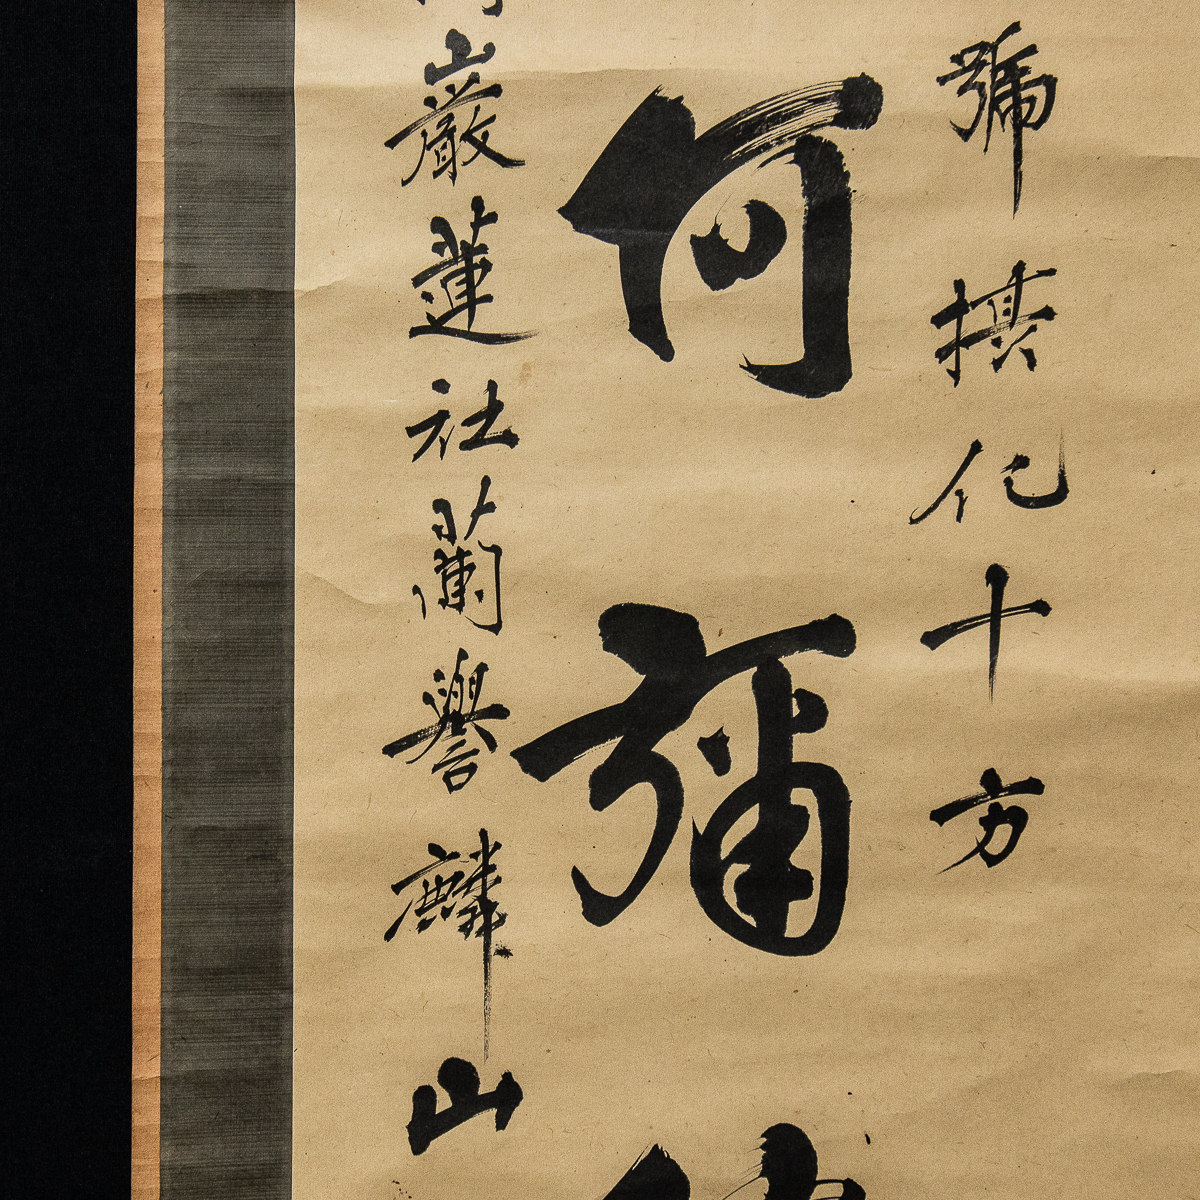 號摂化十方
阿彌
巌蓮社蘭譽麟山